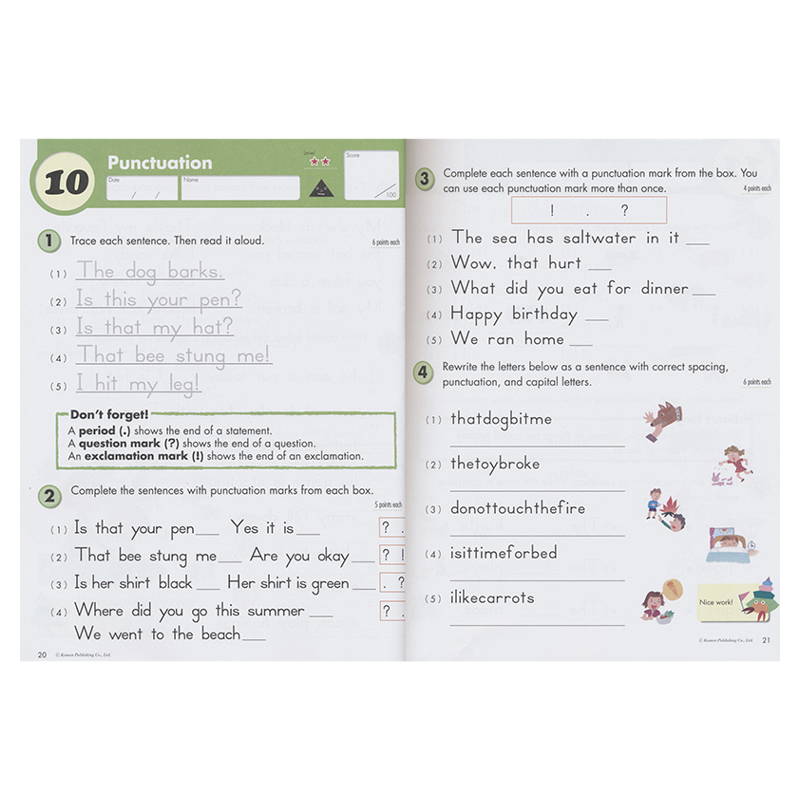 10
Punctuation
Level
Score
Date
Name
/ /
/100
1 Trace each sentence. Then read it aloud.
6 points each
(1) The dog barks.
(2) Is this your pen?
(3) Is that my hat?
(4) That bee stung me!
(5) I hit my leg!
Don't forget!
A period (.) shows the end of a statement.
A question mark (?) shows the end of a question.
An exclamation mark (!) shows the end of an exclamation.
2 Complete the sentences with punctuation marks from each box.
5 points each
(1) Is that your pen___ Yes it is ___ ? .
(2) That bee stung me___ Are you okay___ ? !
(3) Is her shirt black ___ Her shirt is green ___ . ?
(4) Where did you go this summer ___ ? .
We went to the beach___
20 © Kumon Publishing Co., Ltd.
3 Complete each sentence with a punctuation mark from the box. You
can use each punctuation mark more than once.
4 points each
! . ?
(1) The sea has saltwater in it ___
(2) Wow, that hurt ___
(3) What did you eat for dinner ___
(4) Happy birthday ___
(5) We ran home ___
4 Rewrite the letters below as a sentence with correct spacing,
punctuation, and capital letters.
6 points each
(1) thatdogbitme
(2) thetoybroke
(3) donottouchthefire
(4) isittimeforbed
(5) ilikecarrots
Nice work!
© Kumon Publishing Co., Ltd. 21